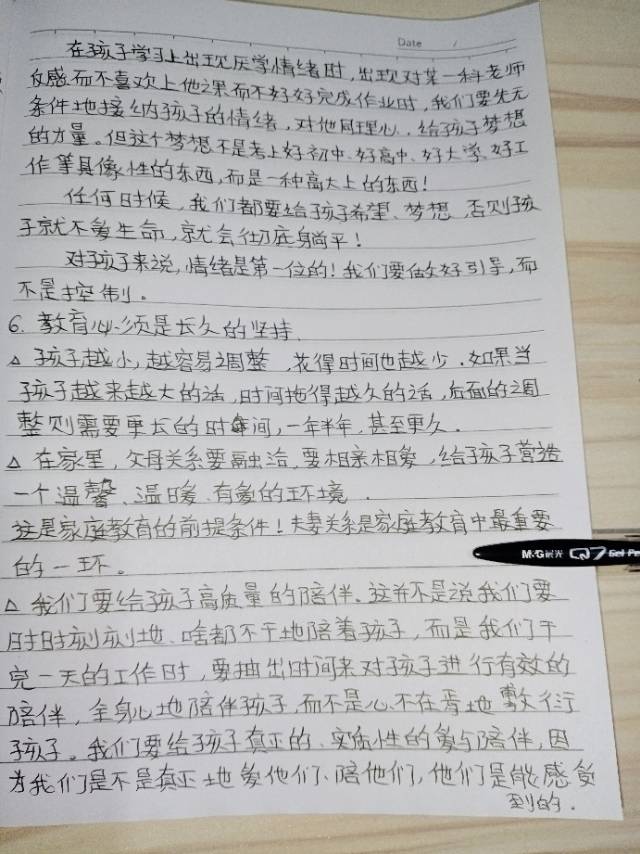 Date /
在孩子学习上出现厌学情绪时,出现对某一科老师
反感而不喜欢上他之课而不好好完成作业时,我们要先无
条件地接纳孩子的情绪,对他同理心,给孩子梦想
的力量。但这个梦想不是考上好初中、好高中、好大学、好工
作等具像性的东西,而是一种高大上的东西!
任何时候,我们都要给孩子希望、梦想,否则孩
子就不爱生命,就会彻底躺平!
对孩子来说,情绪是第一位的!我们要做好引导,而
不是控制。
6. 教育必须是长久的坚持.
△ 孩子越小,越容易调整,花得时间也越少.如果当
孩子越来越大的话,时间拖得越久的话,后面的调
整则需要更长的时间,一年半年,甚至更久.
△ 在家里,父母关系要融洽,要相亲相爱,给孩子营造
一个温馨、温暖、有爱的环境.
这是家庭教育的前提条件!夫妻关系是家庭教育中最重要
的一环。
△ 我们要给孩子高质量的陪伴.这并不是说我们要
时时刻刻地、啥都不干地陪着孩子,而是我们干
完一天的工作时,要抽出时间来对孩子进行有效的
陪伴,全身心地陪伴孩子,而不是心不在焉地敷衍
孩子。我们要给孩子真正的、实质性的爱与陪伴,因
为我们是不是真正地爱他们、陪他们,他们是能感受
到的.
M&G 晨光 Q7 Gel Pe